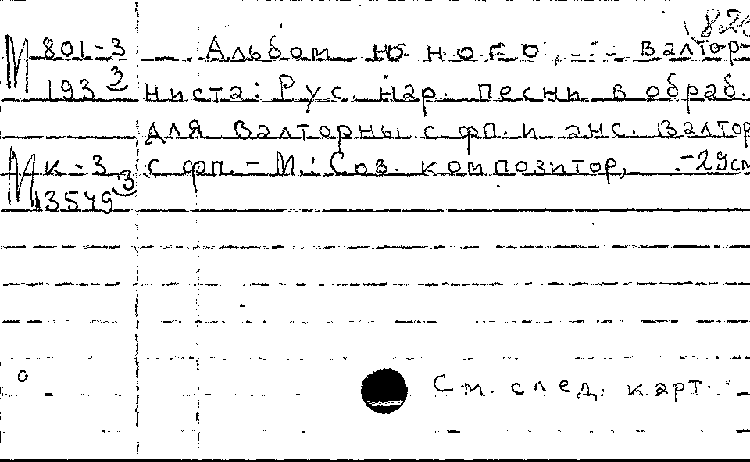 М 801-3 Альбом юного валтор-
193 3 ниста: Рус. нар. песни в обраб.
для валторны с фп. и анс. валтор
М К-3 с фп. - М.: Сов. композитор, -29см
13549 3
См. след. карт.